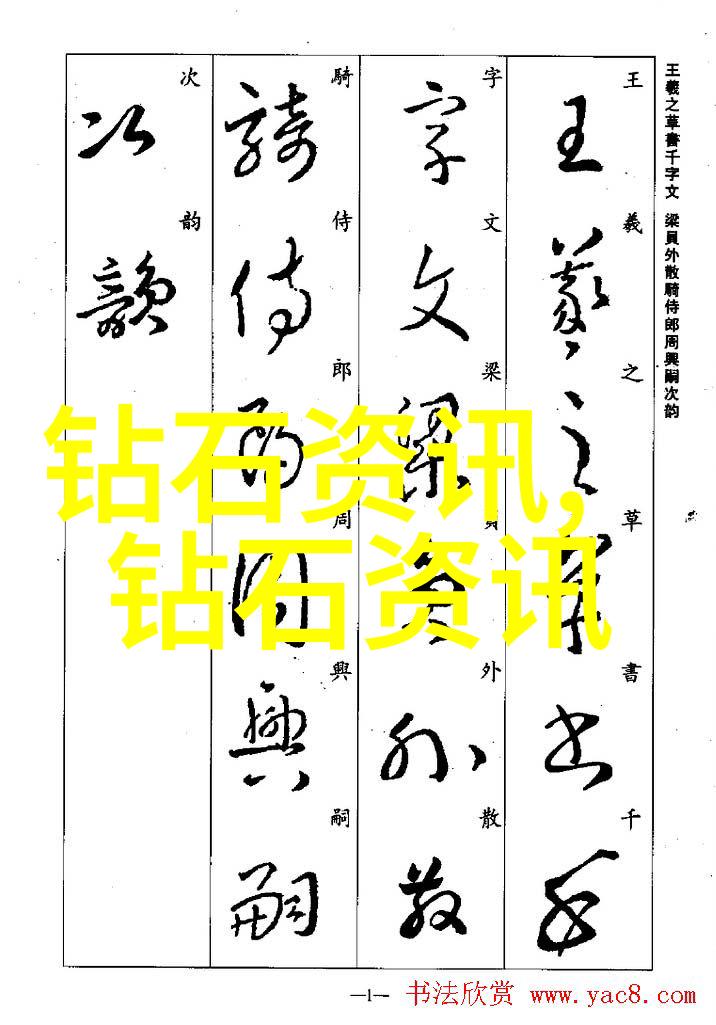 王羲之草書千字文 梁員外散騎侍郎周興嗣次韵
王羲之草書千
字文梁員外散
騎侍郎周興嗣
次韵
钻石资讯,
钻石资讯
—1—
书法欣赏 www.yac8.com